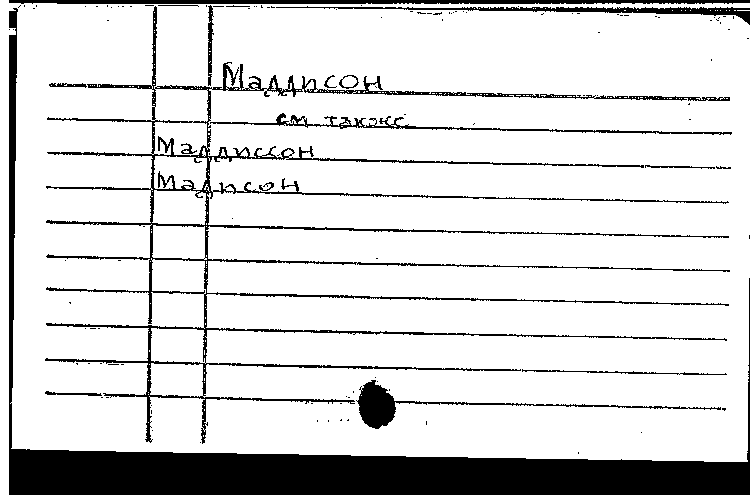 Маддисон
см также
Маддиссон
Мадисон